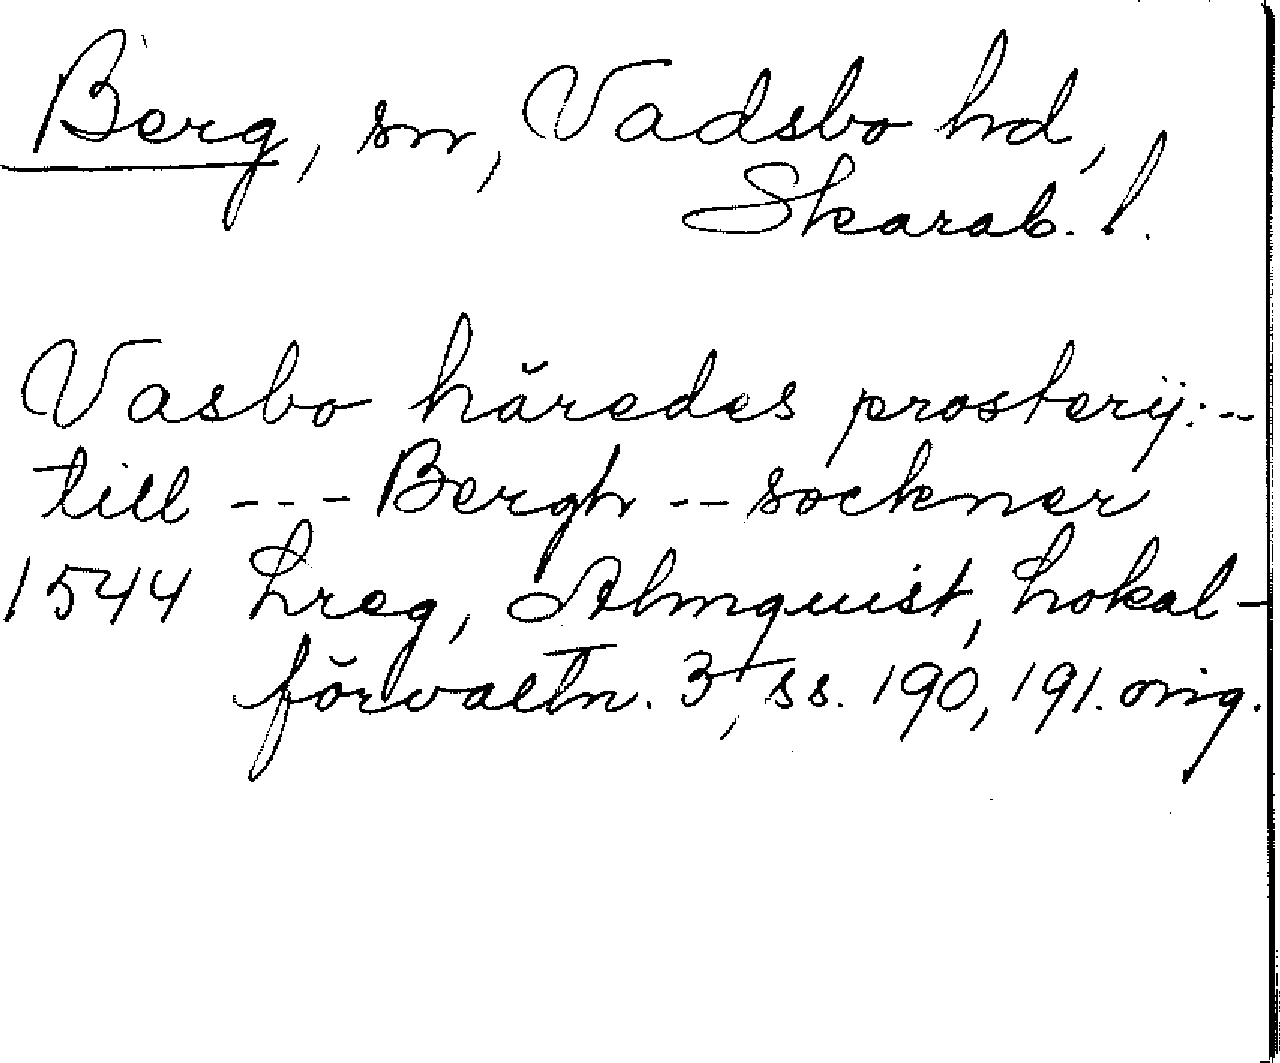 Berg, sn, Vadsbo hd,
Skarab. l.
Vasbo häredes prosterij: --
till --- Bergh -- sockner
1544 Lreg, Almquist, Lokal-
förvaltn. 3, ss. 190, 191. orig.